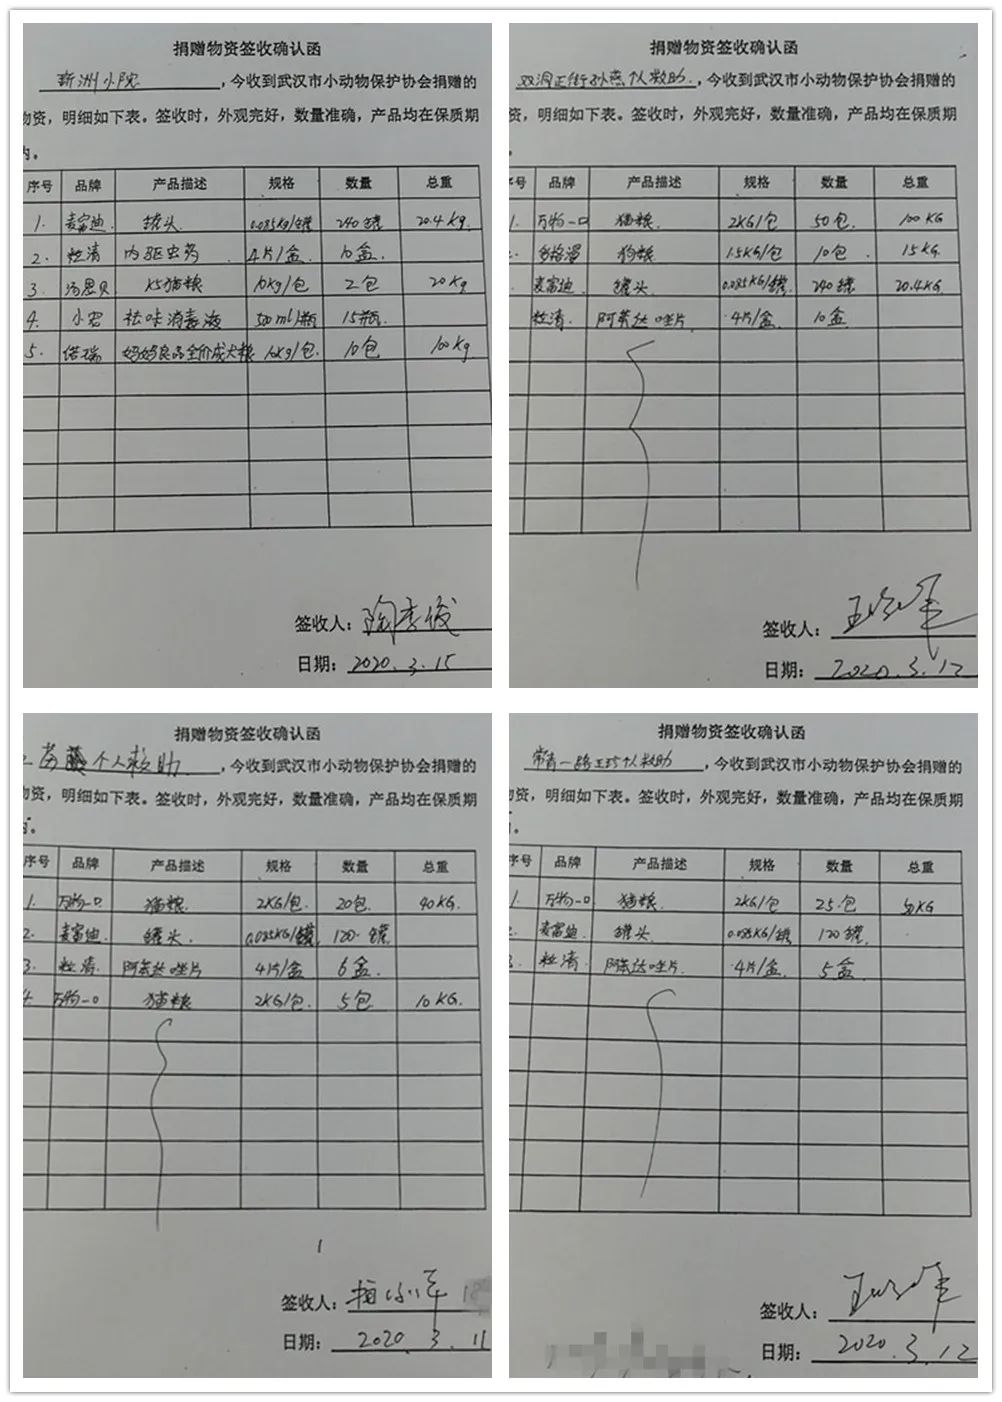 捐赠物资签收确认函
新洲小院,今收到武汉市小动物保护协会捐赠的
物资,明细如下表。签收时,外观完好,数量准确,产品均在保质期
内。
序号 品牌 产品描述 规格 数量 总重
1. 麦富迪 罐头 0.085Kg/罐 240罐 20.4Kg
2. 粒清 内驱虫药 4片/盒 10盒
3. 汤恩贝 K5猫粮 10Kg/包 2包 20Kg
4. 小宠 祛味消毒液 500ml/瓶 15瓶
5. 偌瑞 妈妈良品全价成犬粮 10Kg/包 10包 100Kg
签收人:
日期:2020.3.15
捐赠物资签收确认函
双洞正街孙燕个人救助,今收到武汉市小动物保护协会捐赠的
资,明细如下表。签收时,外观完好,数量准确,产品均在保质期
号 品牌 产品描述 规格 数量 总重
1. 万物一口 猫粮 2KG/包 50包 100KG
狗粮 1.5KG/包 10包 15KG
麦富迪 罐头 0.085KG/罐 240罐 20.4KG
粒清 阿苯达唑片 4片/盒 10盒
签收人:
日期:2020.3.12
捐赠物资签收确认函
个人救助,今收到武汉市小动物保护协会捐赠的
物资,明细如下表。签收时,外观完好,数量准确,产品均在保质期
序号 品牌 产品描述 规格 数量 总重
1. 万物一口 猫粮 2KG/包 20包 40KG
2. 麦富迪 罐头 0.085KG/罐 120罐
3. 粒清 阿苯达唑片 4片/盒 6盒
4. 万物一口 猫粮 2KG/包 5包 10KG
签收人:
日期:2020.3.11
捐赠物资签收确认函
常青一路王巧个人救助,今收到武汉市小动物保护协会捐赠的
资,明细如下表。签收时,外观完好,数量准确,产品均在保质期
号 品牌 产品描述 规格 数量 总重
1. 万物一口 猫粮 2KG/包 25包 50KG
2. 麦富迪 罐头 0.085KG/罐 120罐
3. 粒清 阿苯达唑片 4片/盒 5盒
签收人:
日期:2020.3.12